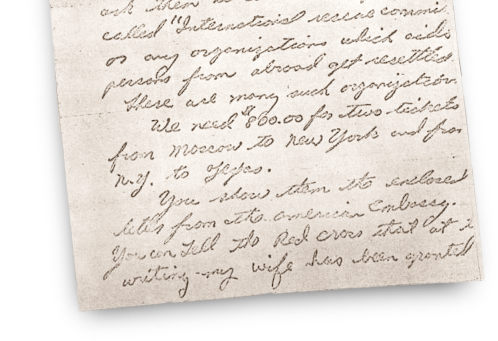 ask them
called "International rescue commi
or any organizations which aids
persons from abroad get resettled.
There are many such organizations.
We need $800.00 for two tickets
from Moscow to New York and from
N.Y. to Texas.
You show them the enclosed
letter from the American Embassy.
You can tell the Red Cross that at
writing my wife has been granted